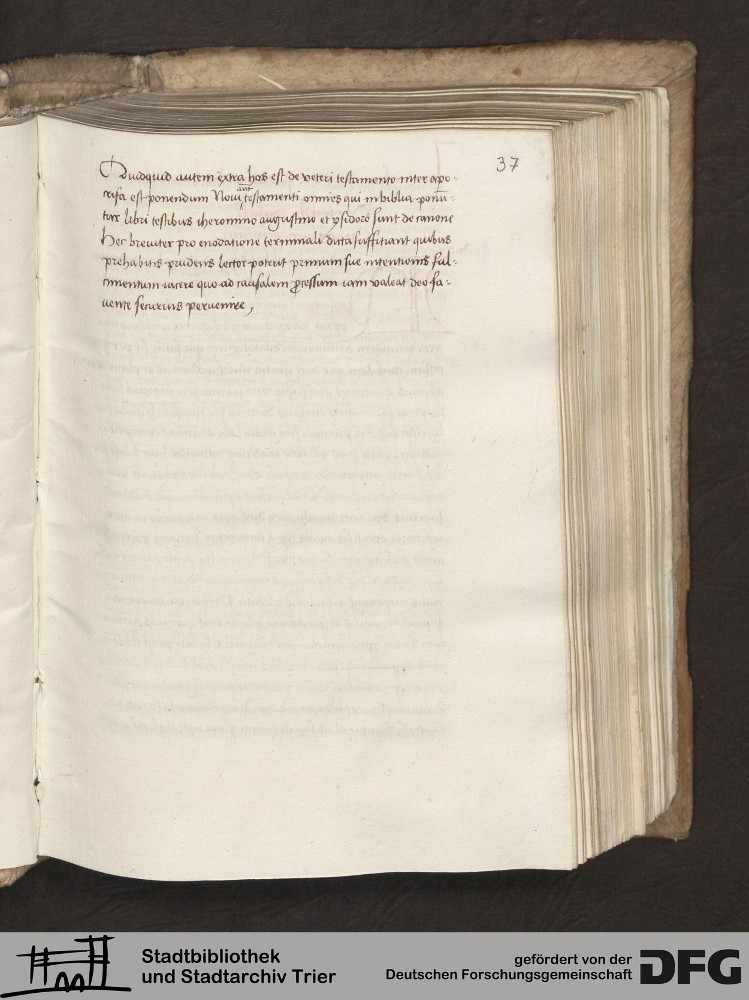 37
Quidquid autem extra hos est de veteri testamento inter apo-
crifa est ponendum Noui aut testamenti omnes qui in biblia ponū-
tur libri testibus iheronimo augustino et ysidoro sunt de canone
Hec breuiter pro enodatione terminali dicta sufficiant quibus
prehabitis prudens lector poterit primum sue intentionis ful-
cimentum iacere quo ad causalem ꝓcessum iam valeat deo fa-
uente securius peruenire
Stadtbibliothek
und Stadtarchiv Trier
gefördert von der
Deutschen Forschungsgemeinschaft
DFG